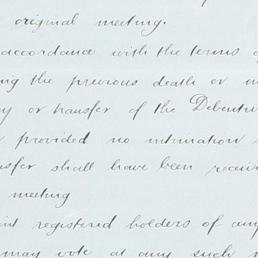 original meeting.
accordance with the terms of
ing the previous death or in
y or transfer of the Debentu
provided no intimation
sfer shall have been receiv
meeting
int registered holders of any
may vote at any such